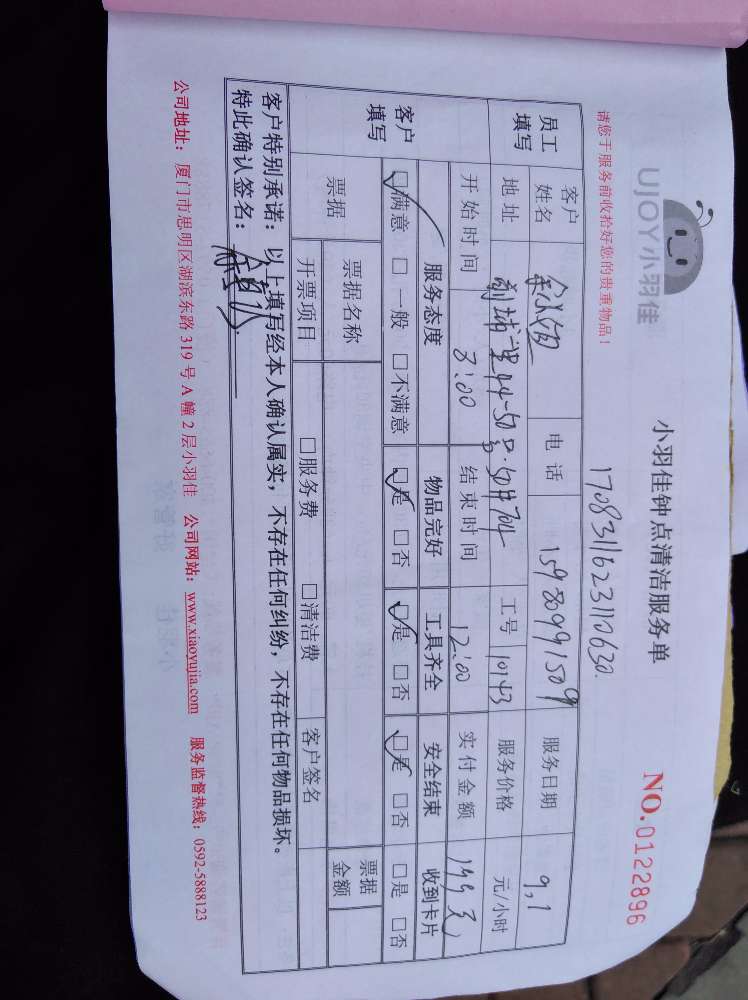 UJOY小羽佳
小羽佳钟点清洁服务单
NO.0122896
请您于服务前收拾好您的贵重物品!
17083116231110630
员工填写 客户姓名 电话 15980991509 服务日期 9,1
地址 50号 704 工号 10143 服务价格 元/小时
开始时间 8:00 结束时间 12:00 实付金额 元
客户填写 服务态度 物品完好 工具齐全 安全结束 收到卡片
☑满意 □一般 □不满意 ☑是 □否 ☑是 □否 ☑是 □否 □是 □否
票据 票据名称 票据金额
开票项目 □服务费 □清洁费 客户签名
客户特别承诺:以上填写经本人确认属实,不存在任何纠纷,不存在任何物品损坏。
特此确认签名:
公司地址:厦门市思明区湖滨东路 319 号 A 幢 2 层小羽佳 公司网站:www.xiaoyujia.com 服务监督热线:0592-5888123